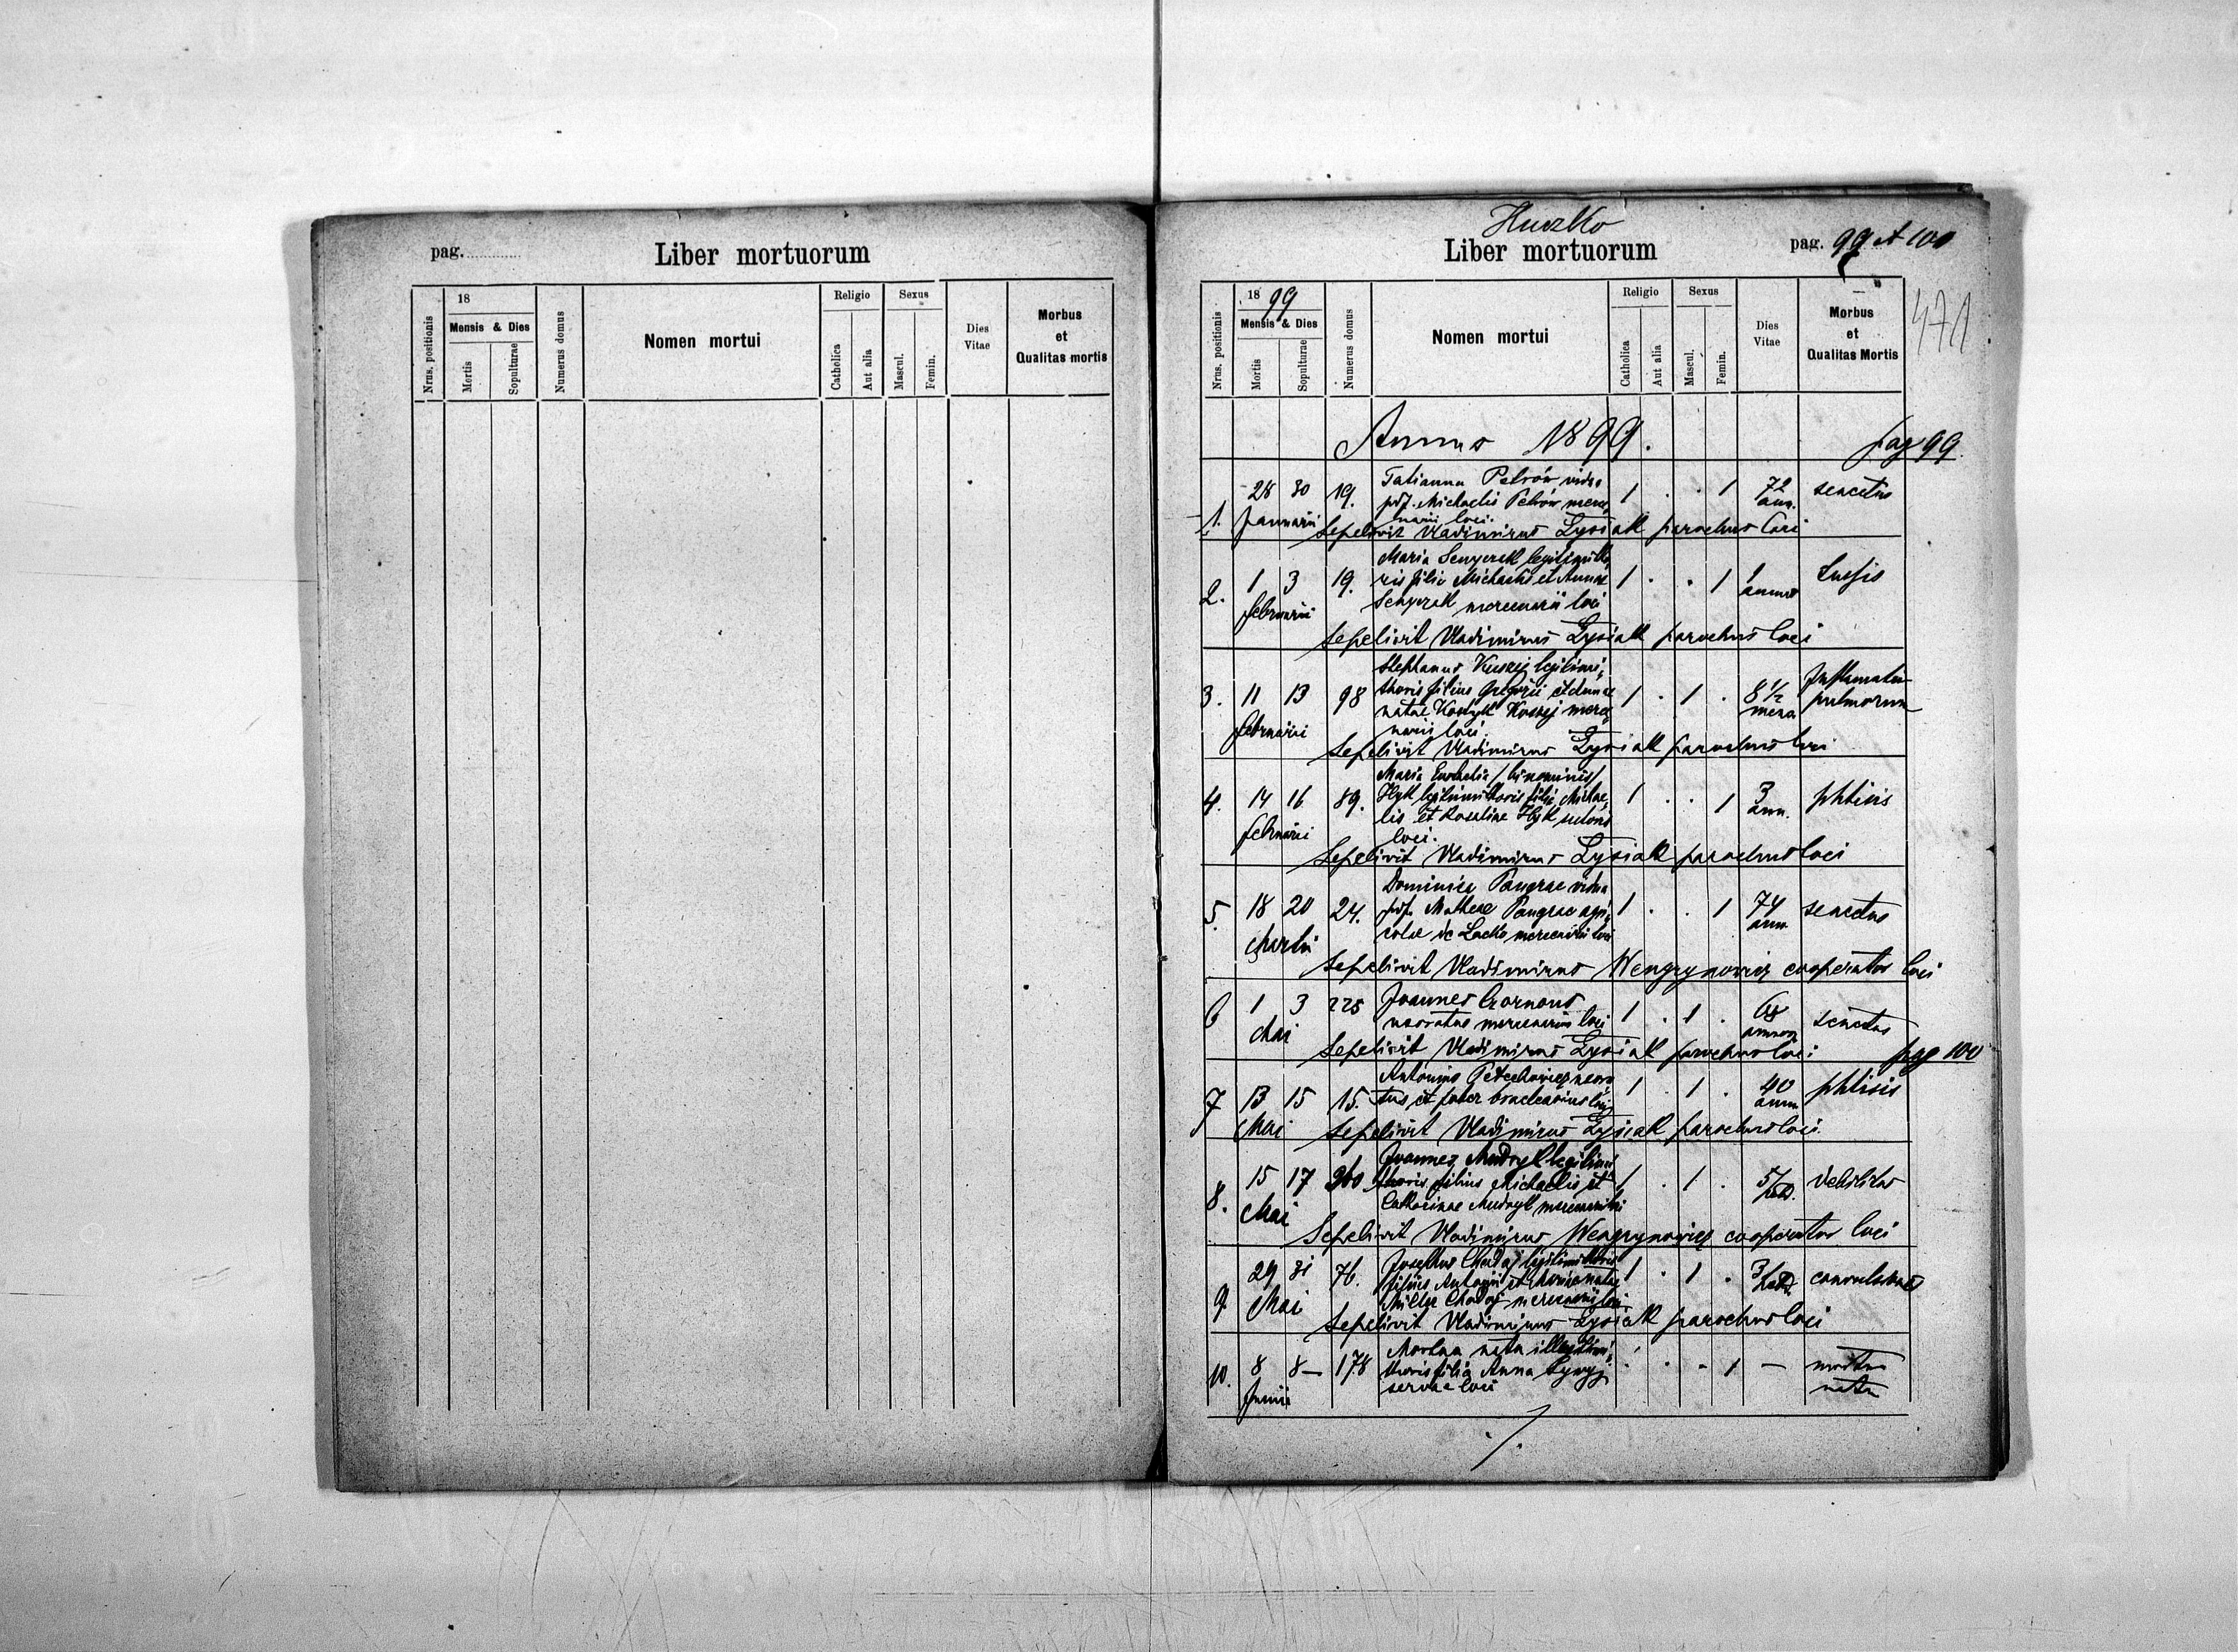 pag.
Liber mortuorum
Nrus. positionis
18
Mensis & Dies
Mortis
Sopulturae
Numerus domus
Nomen mortui
Religio
Catholica
Aut alia
Sexus
Mascul.
Femin.
Dies Vitae
Morbus
et
Qualitas mortis
Huzko
Liber mortuorum
pag. 99 et 100
471
Nrus. positionis
1899
Mensis & Dies
Mortis
Sopulturae
Numerus domus
Nomen mortui
Religio
Catholica
Aut alia
Sexus
Mascul.
Femin.
Dies Vitae
Morbus
et
Qualitas Mortis
Annus 1899.
pag 99.
Tatianna Petrów vidua
1. 28 30 19. p. d. f. Michaelis Petrów merce 1 . . 1 72 ann. senectus
Januarii narii loci.
Sepelivit Vladimirus Lysiak parochus loci
Maria Senyczak legitimi tho
2. 1 3 19. ris filia Michaelis et Annae 1 . . 1 1 annus tussis
februarii Senyczak mercenarii loci
Sepelivit Vladimirus Lysiak parochus loci
Stephanus legitimi
3. 11 13 98 thoris filius Gregorii et Annae 1 . 1 . 8 1/2 mens. pulmorum
februarii natae mercenarii loci.
Sepelivit Vladimirus Lysiak parochus loci
Maria /binominis/
4. 14 16 89. Hyk legitimi thoris filia Michae 1 . . 1 3 ann. phtisis
februarii lis et Rosaliae Hyk sutoris
loci.
Sepelivit Vladimirus Lysiak parochus loci
Dominica Pangrac vidua
5. 18 20 24. Matheae Pangrac agri 1 . . 1 74 ann senectus
Martii colae de Lacko mercenarii loci
Sepelivit Vladimirus Wengrynowicz cooperator loci
6 1 3 225 Joannes Czornous 1 . 1 . 68 annor senectus
Mai uxoratus mercenarius loci
Sepelivit Vladimirus Lysiak parochus loci
pag 100
Antonius Petechowicz uxora
7 13 15 15. tus et loci 1 . 1 . 40 ann phtisis
Mai Sepelivit Vladimirus Lysiak parochus loci.
Joannes Mudryk legitimi
8. 15 17 260 thoris filius Michaelis et 1 . 1 . 5/ debilitas
Mai Catharinae Mudryk mercenarii loci
Sepelivit Vladimirus Wengrynowicz cooperator loci
Josephus Chudaj legitimi thoris
9. 29 31 76. filius Antonii et Mariae natae 1 . 1 . 3/ convulsiones
Mai Miller mercenarii loci
Sepelivit Vladimirus Lysiak parochus loci
Mortua nata illegitimi
10. 8 8 — 178 thoris filia Anna . . . 1 — mortua
Junii servae loci nata